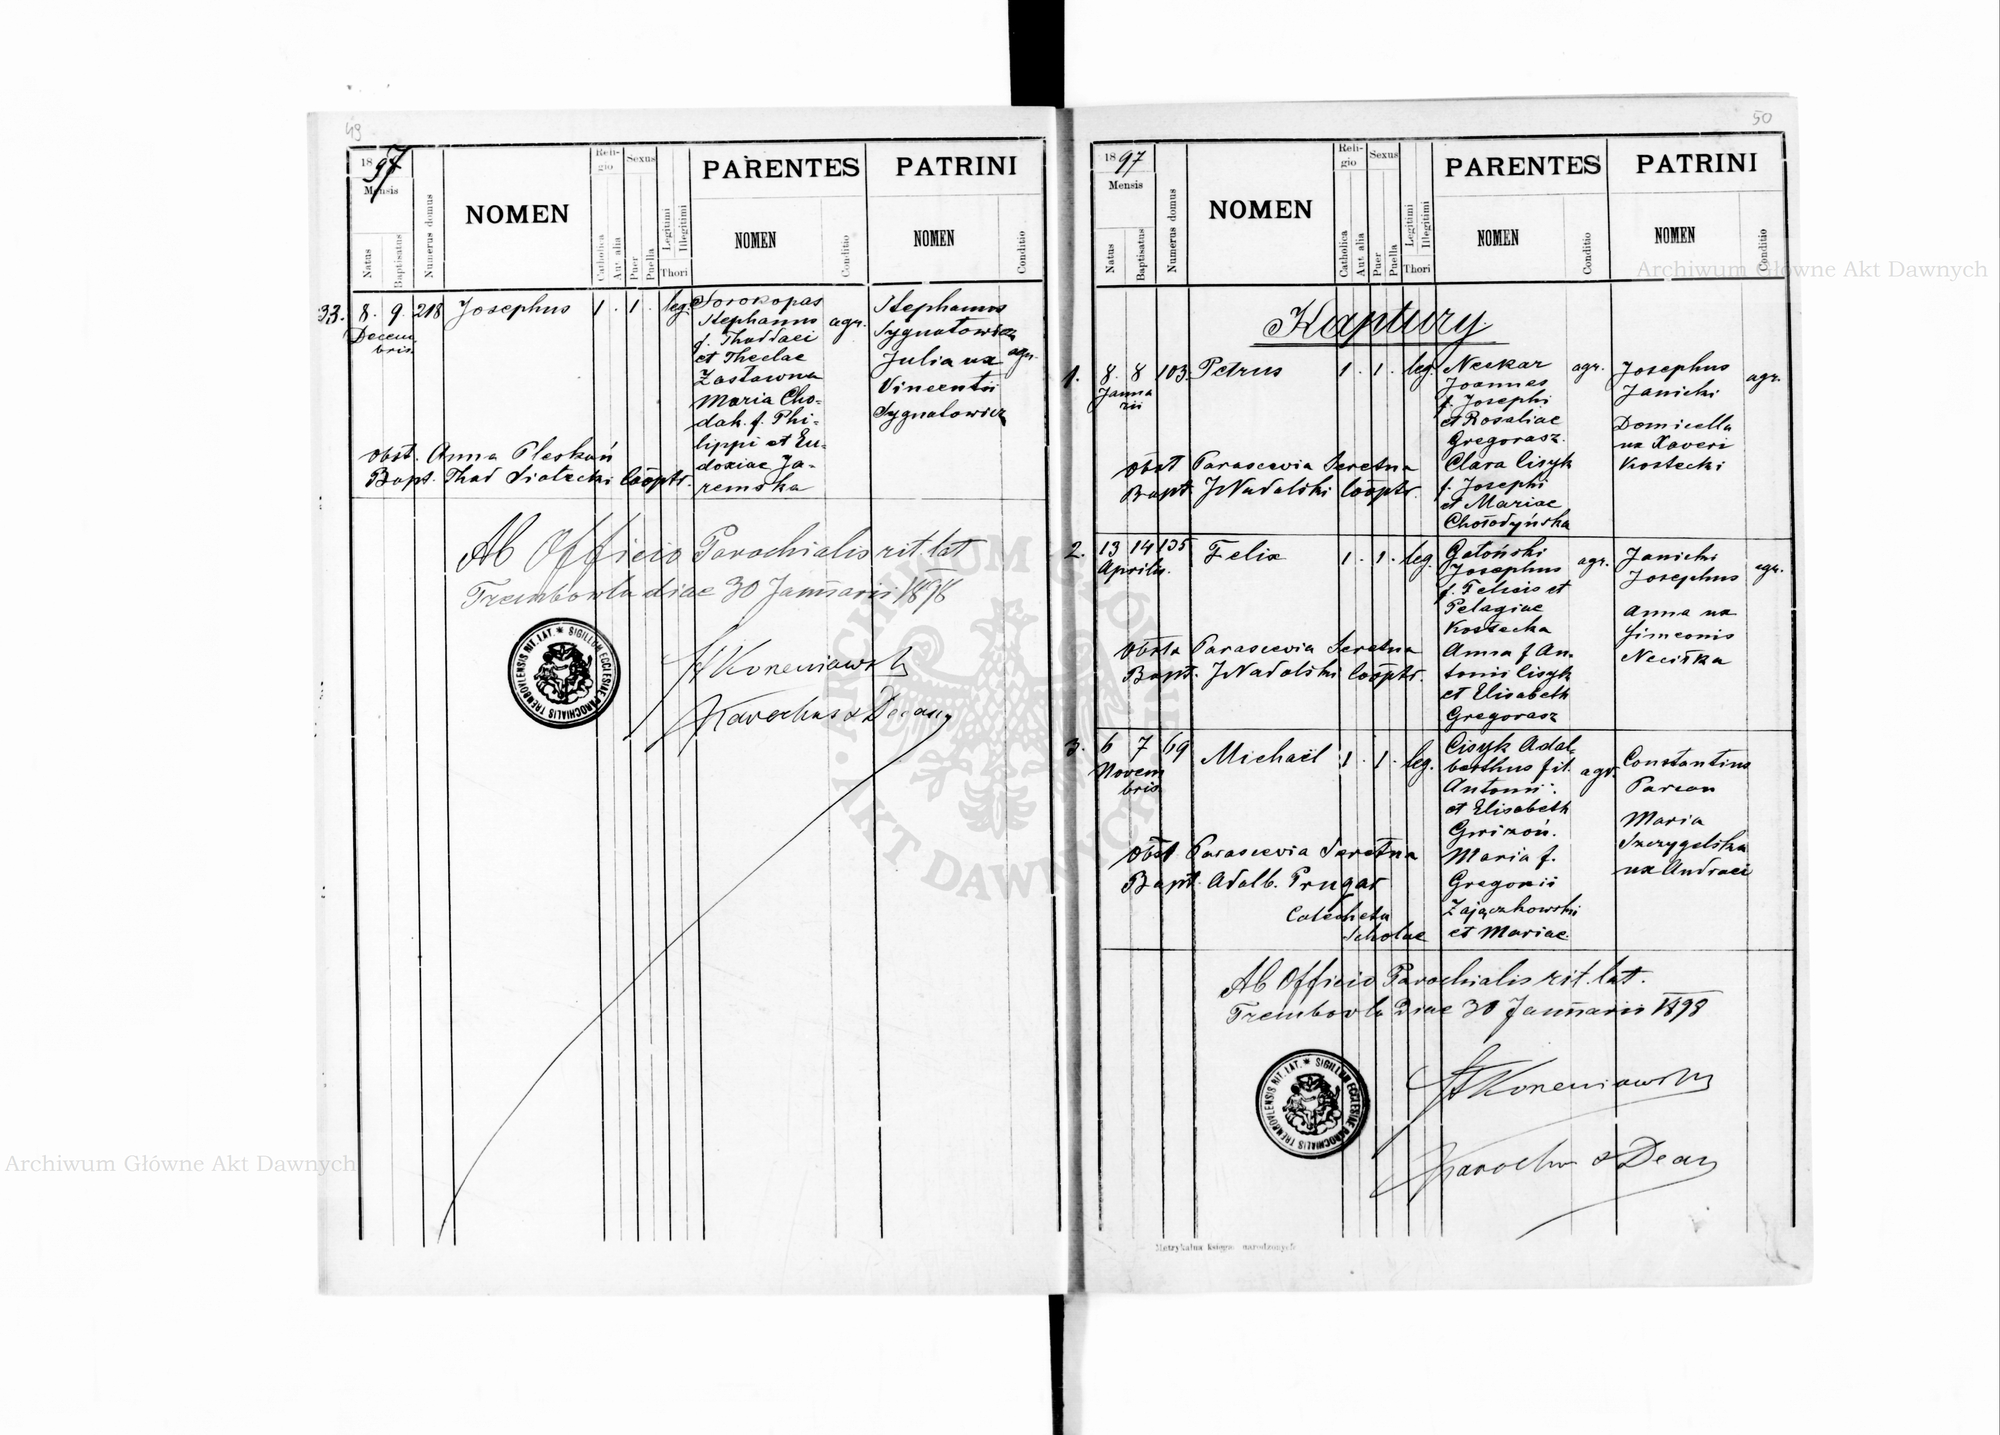 49
1897
Mensis
Natus
Baptisatus
Numerus domus
NOMEN
Religio
Catholica
Aut. alia
Sexus
Puer
Puella
Legitimi
Illegitimi
Thori
PARENTES
NOMEN
Conditio
PATRINI
NOMEN
Conditio
33. 8. 9. 218 Josephus 1 . 1 . leg.
Decem
bris
Sorokopas
Stephanus agr.
f. Thaddaei
et Theclae
Zastawna
Maria Cho-
dak. f. Phi-
lippi et Eu-
doxiae Ja-
remska
Stephanus
Sygnatowicz
Julia ux agr.
Vincentii
Sygnatowicz
obst. Anna Pleskuń
Bapt. Thad Siatecki Cooptr.
Ab Officio Parochialis rit. lat
Trembowla diae 30 Januarii 1898
Parochus & Decany
SIGILLUM ECCLESIAE PAROCHIALIS TREMBOVLENSIS RIT. LAT. *
50
1897
Mensis
Natus
Baptisatus
Numerus domus
NOMEN
Religio
Catholica
Aut. alia
Sexus
Puer
Puella
Legitimi
Illegitimi
Thori
PARENTES
NOMEN
Conditio
PATRINI
NOMEN
Conditio
Kaptury
1. 8. 8 103. Petrus 1 . 1 . leg.
Janua
rii
Neckar agr.
Joannes
f. Josephi
et Rosaliae
Gregorasz.
Clara Cisyk
f. Josephi
et Mariae
Chołodyńska
Josephus
Janicki agr.
Domicella
ux Xaveri
Kostecki
Obst Parascevia Seretna
Bapt. J Nadolski Cooptr.
2. 13 14 135 Felix 1 . 1 . leg.
Aprilis.
Gatoński agr.
Josephus
f. Felicis et
Pelagiae
Kostecka
Anna f An-
tonii Cisyk
et Elisabeth
Gregorasz
Janicki
Josephus agr.
Anna ux
Simeonis
Obsta Parascevia Seretna
Bapt. J Nadolski Cooptr.
3. 6 7 69 Michaël 1 . 1 . leg.
Novem
bris
Cisyk Adal-
berthus fil. agr.
Antonii
et Elisabeth
Maria f.
Gregorii
Zajączkowski
et Mariae.
Constantinus
Parcon
Maria
ux Andraei
Obst Parascevia Seretna
Bapt. Adalb. Prugar
Catecheta
Scholae
Ab Officio Parochialis rit. lat.
Trembowla Diae 30 Januarii 1898
Parochus & Decany
SIGILLUM ECCLESIAE PAROCHIALIS TREMBOVLENSIS RIT. LAT. *
Metrykalna księga narodzonych
ARCHIWUM GŁÓWNE AKT DAWNYCH
Archiwum Główne Akt Dawnych
Archiwum Główne Akt Dawnych